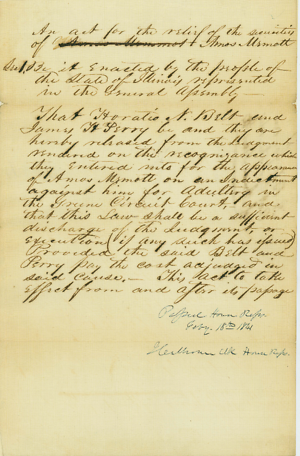 An act for the relief of the sureties
of Amos Mcmott
Sec 1 Be it enacted by the people of
the State of Illinois represented
in the General Assembly
That Horatio N. Belt and
James H Perry be and they are
hereby released from the Judgment
rendered on the recognizance which
they entered into for the appearance
of Amos Mcmott on an Indictment
against him for Adultery in
the Greene Circuit Court and
that this Law shall be a sufficient
discharge of the Judgment or
execution (if any such has issued)
Provided the said Belt and
Perry pay the cost adjudged in
said cause. This act to take
effect from and after its passage
Passed House Reps
Feby. 18th 1841
Clk House Reps